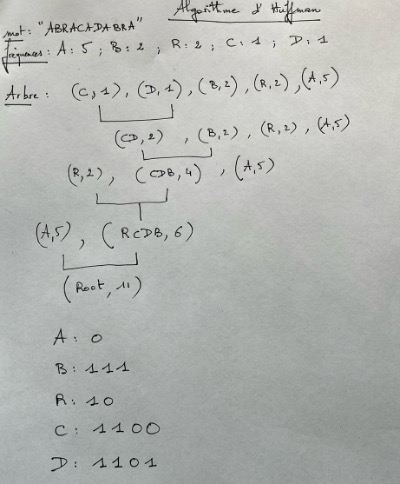 Algorithme d'Huffman
mot: "ABRACADABRA"
fréquences: A: 5 ; B: 2 ; R: 2 ; C: 1 ; D: 1
Arbre: (C,1), (D,1), (B,2), (R,2), (A,5)
(CD,2) , (B,2), (R,2), (A,5)
(R,2), (CDB,4) , (A,5)
(A,5), (RCDB,6)
(Root,11)
A: 0
B: 111
R: 10
C: 1100
D: 1101